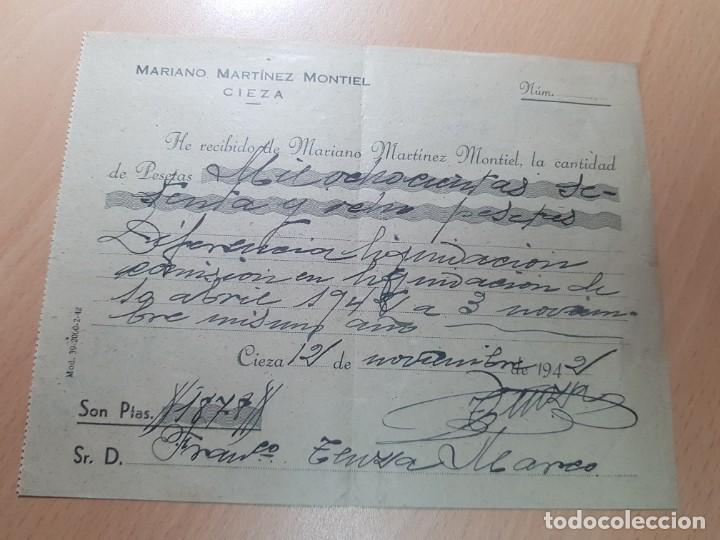 MARIANO MARTÍNEZ MONTIEL
CIEZA
Núm.
He recibido de Mariano Martínez Montiel, la cantidad
de Pesetas Mil ochocientas se-
tenta y ocho pesetas
Diferencia liquidación
comision en liquidacion de
1º abril 194 a 3 noviem-
bre mismo año
Cieza 12 de noviembre de 1942
Son Ptas. 1878
Sr. D. Franco Marco
Mod. 39-2000-2-42
todocoleccion